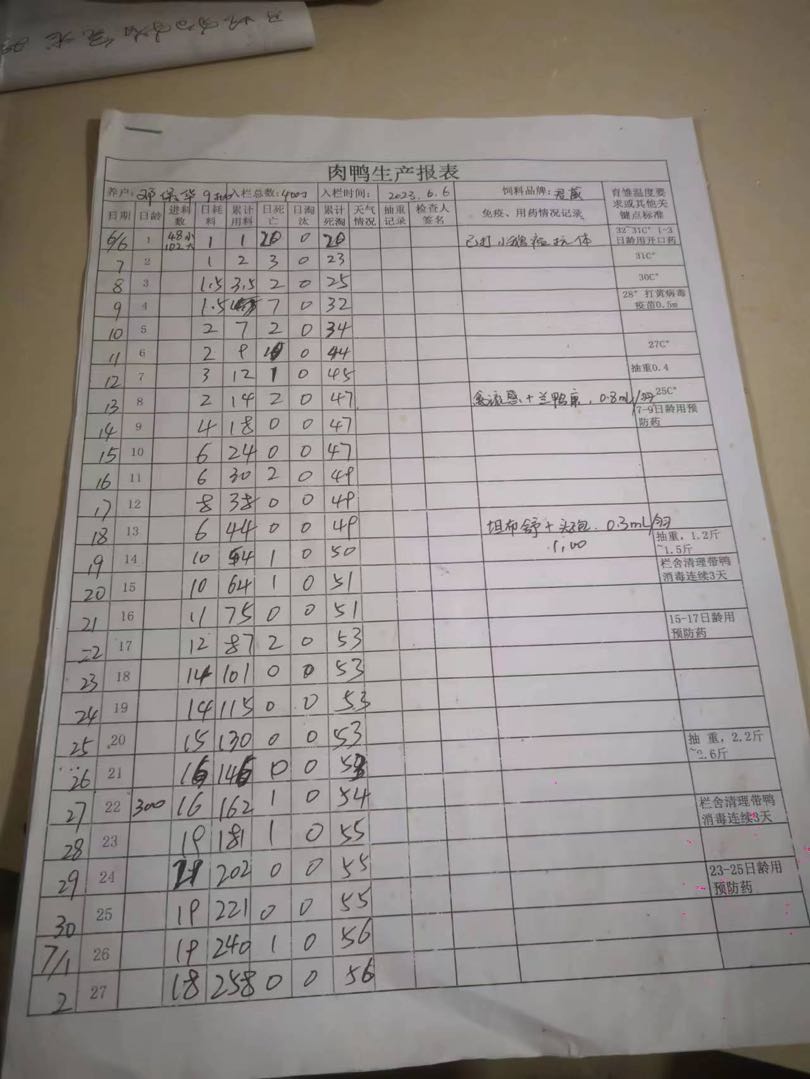 肉鸭生产报表
养户: 邓保华 入栏总数: 入栏时间: 2023.6.6 饲料品牌: 育雏温度要求或其他关键点标准
日期 日龄 进料数 日耗料 累计用料 日死亡 日淘汰 累计死淘 天气情况 抽重记录 检查人签名 免疫、用药情况记录
6/6 1 48小 102大 1 1 20 0 20 已打小鹅瘟抗体 32~31C° 1-3日龄用开口药
7 2 1 2 3 0 23 31C°
8 3 1.5 3.5 2 0 25 30C°
9 4 1.5 7 0 32 28° 打黄病毒疫苗0.5m
10 5 2 7 2 0 34
11 6 2 9 10 0 44 27C°
12 7 3 12 1 0 45 抽重0.4
13 8 2 14 2 0 47 禽流感+ 0.8mL/羽 25C°
14 9 4 18 0 0 47 7-9日龄用预防药
15 10 6 24 0 0 47
16 11 6 30 2 0 49
17 12 8 38 0 0 49
18 13 6 44 0 0 49 坦布舒+头孢. 0.3mL/羽
19 14 10 54 1 0 50 1,00 抽重，1.2斤~1.5斤
20 15 10 64 1 0 51 栏舍清理带鸭消毒连续3天
21 16 11 75 0 0 51
22 17 12 87 2 0 53 15-17日龄用预防药
23 18 14 101 0 0 53
24 19 14 115 0 0 53
25 20 15 130 0 0 53
26 21 16 146 0 0 53 抽 重，2.2斤~2.6斤
27 22 300 16 162 1 0 54
28 23 19 181 1 0 55 栏舍清理带鸭消毒连续3天
29 24 21 202 0 0 55
30 25 19 221 0 0 55 23-25日龄用预防药
7/1 26 19 240 1 0 56
2 27 18 258 0 0 56